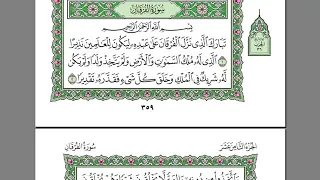 سُورَةُ الْفُرْقَانِ
بِسْمِ اللَّهِ الرَّحْمَٰنِ الرَّحِيمِ
تَبَارَكَ الَّذِي نَزَّلَ الْفُرْقَانَ عَلَىٰ عَبْدِهِ لِيَكُونَ لِلْعَالَمِينَ نَذِيرًا
١ الَّذِي لَهُ مُلْكُ السَّمَاوَاتِ وَالْأَرْضِ وَلَمْ يَتَّخِذْ وَلَدًا وَلَمْ يَكُن
لَّهُ شَرِيكٌ فِي الْمُلْكِ وَخَلَقَ كُلَّ شَيْءٍ فَقَدَّرَهُ تَقْدِيرًا ٢
الحزب
٣٦
٣٥٩
الجزء الثامن عشر
سورة الفرقان